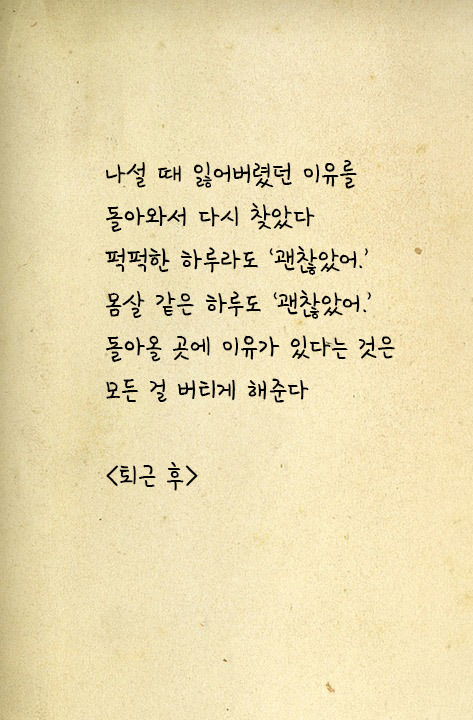 나설 때 잃어버렸던 이유를
돌아와서 다시 찾았다
퍽퍽한 하루라도 ‘괜찮았어.’
몸살 같은 하루도 ‘괜찮았어.’
돌아올 곳에 이유가 있다는 것은
모든 걸 버티게 해준다
<퇴근 후>